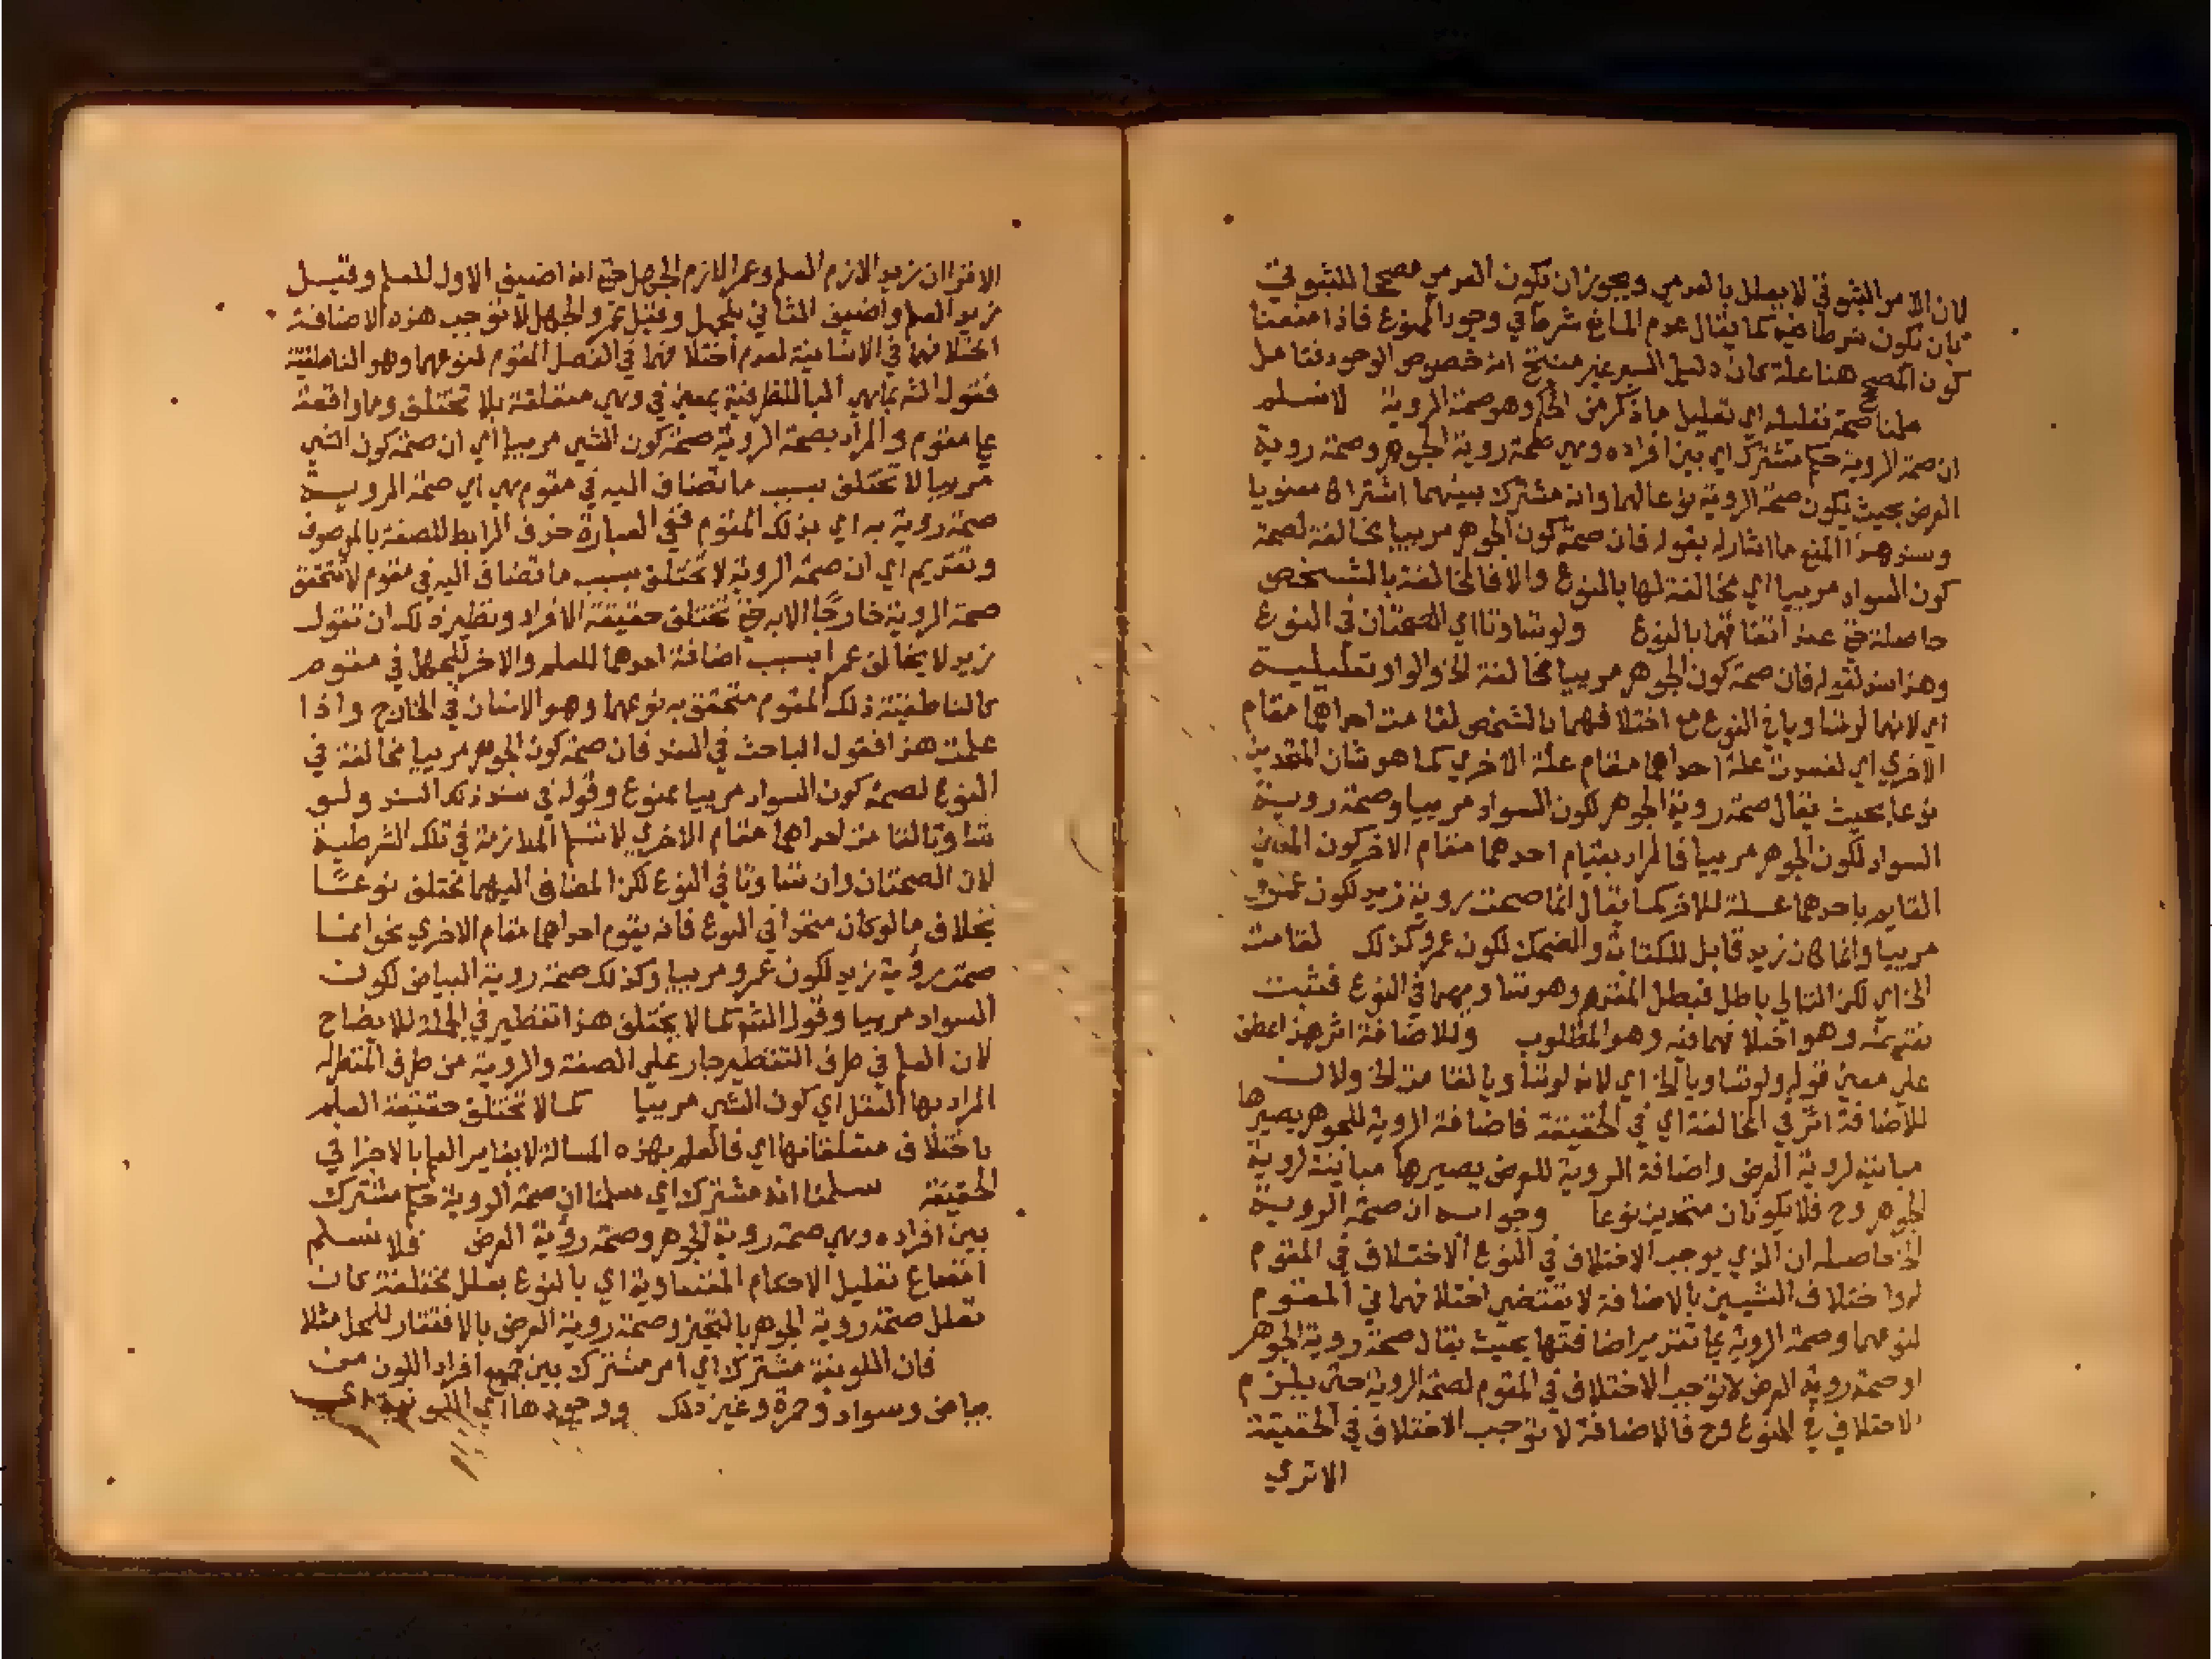 لان الامر الثبوتي لا يعلل بالعدمي ويجوز ان يكون العدمي مصححا للثبوتي
بان يكون شرطا فيه كما يقال عدم المانع شرط في وجود الممنوع فاذا منعنا
كون المصحح هنا علة كان دليل السبر غير منتج انه خصوص الوجود فتامل
سلمنا صحة تعليله اي تعليل ما ذكر من الحكم وهو صحة الروية لا نسلم
ان صحة الروية حكم مشترك اي بين افراده وهي صحة روية الجوهر وصحة روية
العرض بحيث يكون صحة الروية نوعا لهما وانه مشترك بينهما اشتراكا معنويا
وسند هذا المنع ما اشار له بقوله فان صحة كون الجوهر مرييا مخالفة لصحة
كون السواد مرييا اي مخالفة لها بالنوع والا فالمخالفة بالشخص
حاصلة حتى عند اتفاقهما بالنوع ولو تساوتا اي الصحتان في النوع
وهذا سند لقوله فان صحة كون الجوهر مرييا مخالفة الخ والواو تعليلية
اي لانهما لو تساويا في النوع مع اختلافهما بالشخص لقامت احداهما مقام
الاخري اي لقسدت علة احداهما مقام علة الاخري كما هو شان المتحدين
نوعا بحيث يقال صحة روية الجوهر لكون السواد مرييا وصحة روية
السواد لكون الجوهر مرييا فالمراد بقيام احدهما مقام الاخر كون المعني
القايم باحدهما علة للاخر كما يقال انما صحت روية زيد لكون عمرو
مرييا وانما كان زيد قابل للكتابة والضحك لكون عمرو كذلك لقامت
الخ اي لكن التالي باطل فبطل المقدم وهو تساويهما في النوع فثبت
نقيضه وهو اختلافهما فيه وهو المطلوب وللاضافة اثر هذا عطف
علي معني قوله ولو تساويا الخ اي لانه لو تساويا لقامت الخ ولان
للاضافة اثر في المخالفة اي في الحقيقة فاضافة الروية للجوهر يصيرها
مباينة لروية العرض واضافة الروية للعرض يصيرها مباينة لروية
الجوهر وح فلا يكونان متحدين نوعا وجوابه ان صحة الروية
الخ حاصله ان الذي يوجب الاختلاف في النوع الاختلاف في المقوم
له واختلاف الشيين بالاضافة لا يقتضي اختلافهما في المقوم
لنوعهما وصحة الروية علي تقدير اضافتها بحيث يقال صحة روية الجوهر
او صحة روية العرض لا توجب الاختلاف في المقوم لصحة الروية حتى يلزم
الاختلاف في النوع وح فالاضافة لا توجب الاختلاف في الحقيقة
الا تري
الا تري ان زيد الازم العلم وعمرا لازم الجهل حتى انه اضيف الاول للعلم وقيل
زيد العلم واضيف الثاني للجهل وقيل عمرو الجهل لا توجب هذه الاضافة
اختلافهما في الانسانية لعدم اختلافهما في الفصل المقوم لنوعهما وهو الناطقية
فقول الش بما هي البا للظرفية بمعني في وهي متعلقة بلا تختلف وما واقعة
علي مقوم والمراد بصحة الروية صحة كون الشي مرييا اي ان صحة كون الشي
مرييا لا تختلف بسبب ما تضاف اليه في مقوم هي اي صحة الروية
صحة روية به اي بذلك المقوم ففي العبارة حذف الرابط للصفة بالموصوف
وتقديم اي ان صحة الروية لا تختلف بسبب ما تضاف اليه في مقوم لا تتحقق
صحة الروية خارجًا الا به حتى تختلف حقيقة الافراد ونظيره لك ان تقول
زيد لا يخالف عمرا بسبب اضافة احدهما للعلم والاخر للجهل في مقوم
كالناطقية ذلك المقوم متحقق به نوعهما وهو الانسان في الخارج واذا
علمت هذا فقول الباحث في السند فان صحة كون الجوهر مرييا مخالفة في
النوع لصحة كون السواد مرييا ممنوع وقوله في سند ذلك السند ولو
تساوتا لقامت احداهما مقام الاخري لا نسلم الملازمة في تلك الشرطية
لان الصحتان وان تساوتا في النوع لكن المضاف اليهما مختلف نوعًا
بخلاف ما لو كان متحدا في النوع فانه يقوم احداهما مقام الاخري نحو انما
صحت روية زيد لكون عمرو مرييا وكذلك صحة روية البياض لكون
السواد مرييا وقول الش كما لا يختلف هذا تنظير في الجملة للايضاح
لان العلم في طرف التنظير جار علي الصفة والروية من طرف المنظر له
المراد بها التعلق اي كون الشي مرييا كما لا تختلف حقيقة العلم
باختلاف متعلقاتها اي فالعلم بهذه المسالة لا يغاير العلم بالاخرا في
الحقيقة سلمنا انه مشترك اي سلمنا ان صحة الروية حكم مشترك
بين افراده وهي صحة روية الجوهر وصحة روية العرض فلا نسلم
امتناع تعليل الاحكام المتساوية اي بالنوع بعلل مختلفة كان
تعلل صحة روية الجوهر بالتحيز وصحة روية العرض بالافتقار للمحل مثلا
فان اللونية مشترك اي امر مشترك بين جميع افراد اللون من
بياض وسواد وحمرة وغير ذلك ووجودها اي اللونية اي